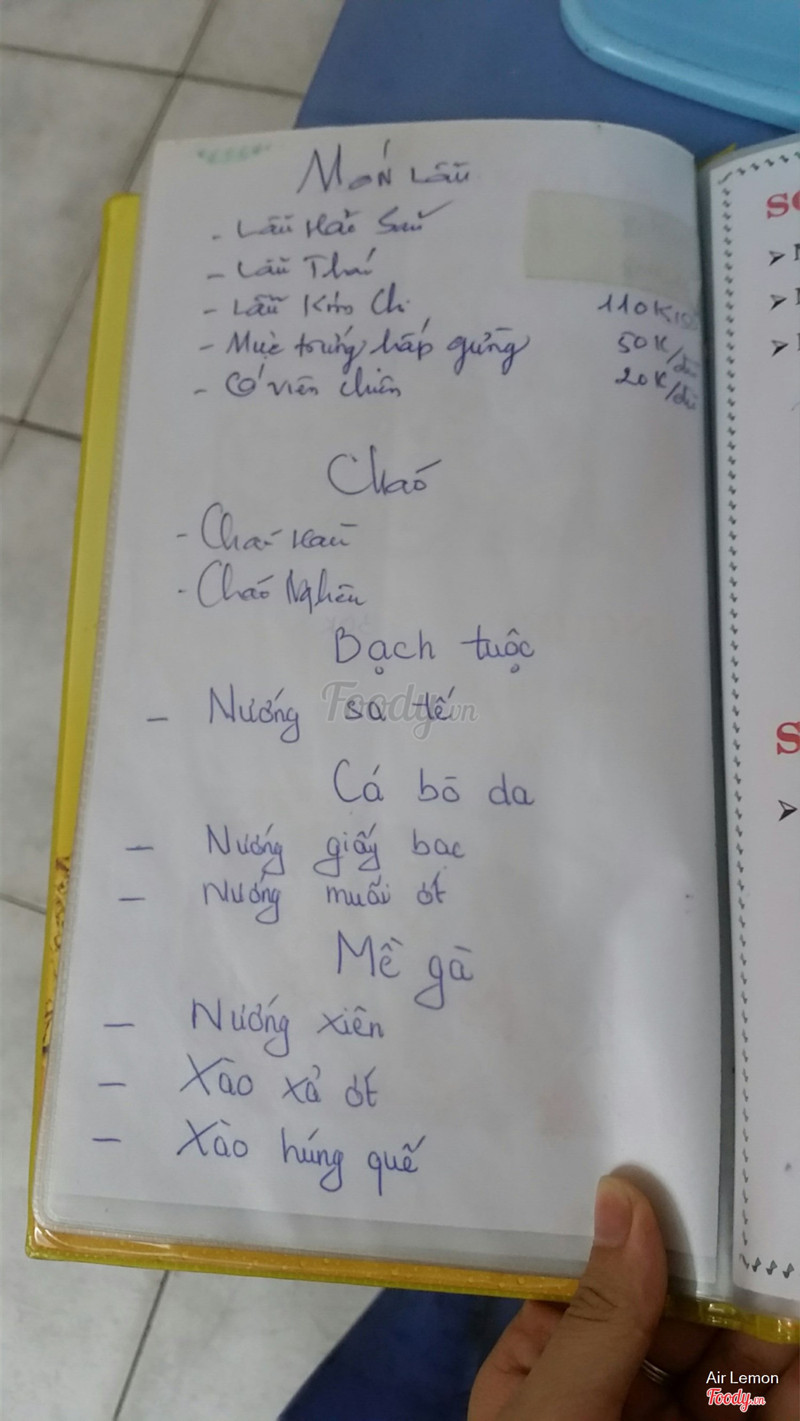 Món Lẩu
- Lẩu Hải Sản
- Lẩu Thái
- Lẩu Kim Chi 110K
- Mực trứng hấp gừng 50K/dĩa
- Cá viên chiên 20K/dĩa
Cháo
- Cháo Hàu
- Cháo Nghêu
Bạch tuộc
- Nướng sa tế
Cá bò da
- Nướng giấy bạc
- Nướng muối ớt
Mề gà
- Nướng xiên
- Xào xả ớt
- Xào húng quế
Foody.vn
Air Lemon
Foody.vn